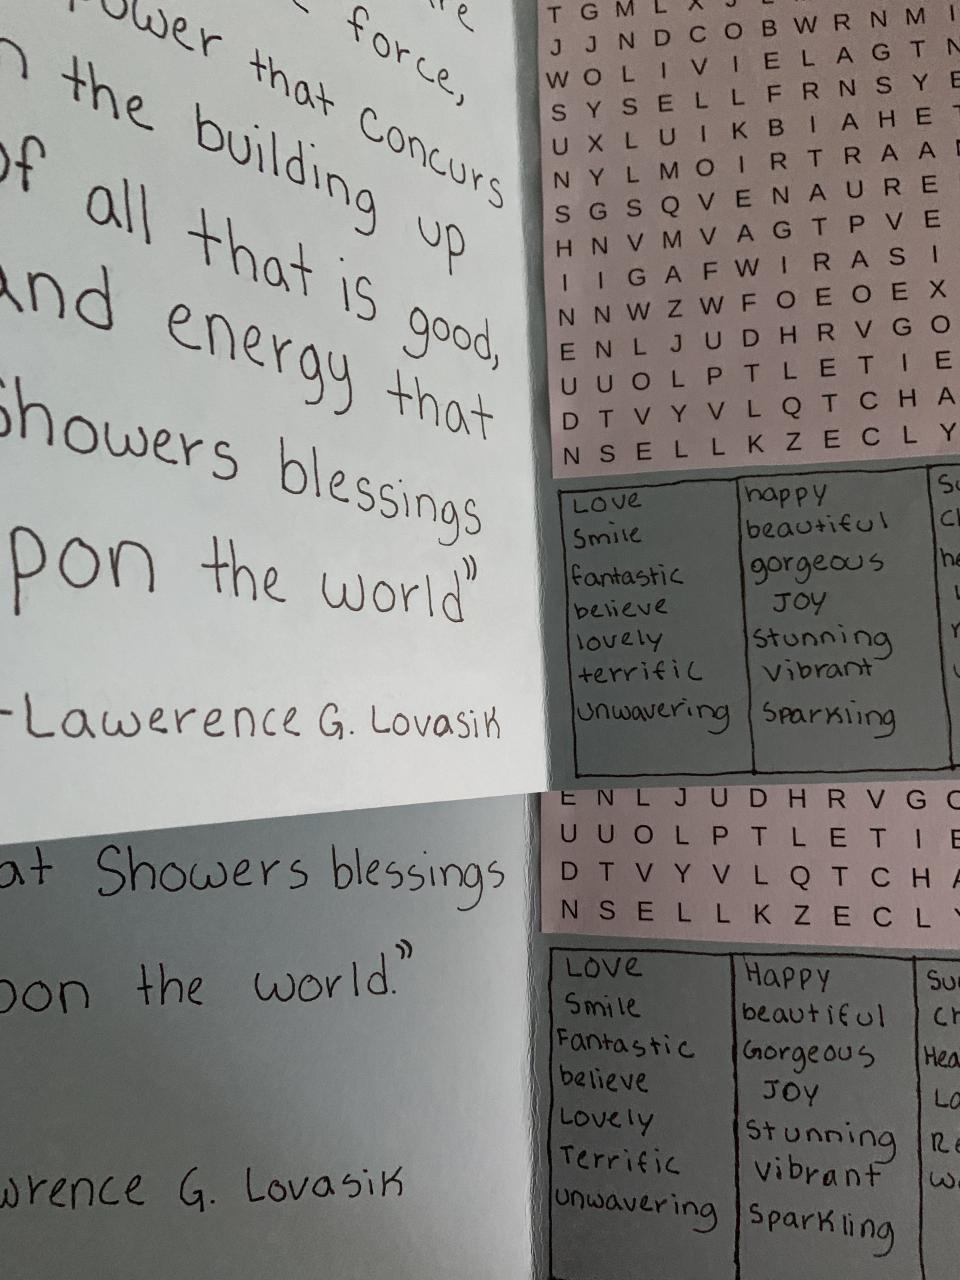 force,
that concurs
the building up
of all that is good,
and energy that
showers blessings
pon the world"
-Lawerence G. Lovasik
T G M L X J L
J J N D C O B W R N M I
W O L I V I E L A G T N
S Y S E L L F R N S Y E
U X L U I K B I A H E
N Y L M O I R T R A A
S G S Q V E N A U R E
H N V M V A G T P V E
I I G A F W I R A S I
N N W Z W F O E O E X
E N L J U D H R V G O
U U O L P T L E T I E
D T V Y V L Q T C H A
N S E L L K Z E C L Y
Love
Smile
fantastic
believe
lovely
terrific
unwavering
happy
beautiful
gorgeous
Joy
Stunning
Vibrant
Sparkling
at Showers blessings
pon the world."
wrence G. Lovasik
E N L J U D H R V G O
U U O L P T L E T I E
D T V Y V L Q T C H A
N S E L L K Z E C L Y
Love
Smile
Fantastic
believe
Lovely
Terrific
unwavering
Happy
beautiful
Gorgeous
Joy
Stunning
Vibrant
Sparkling